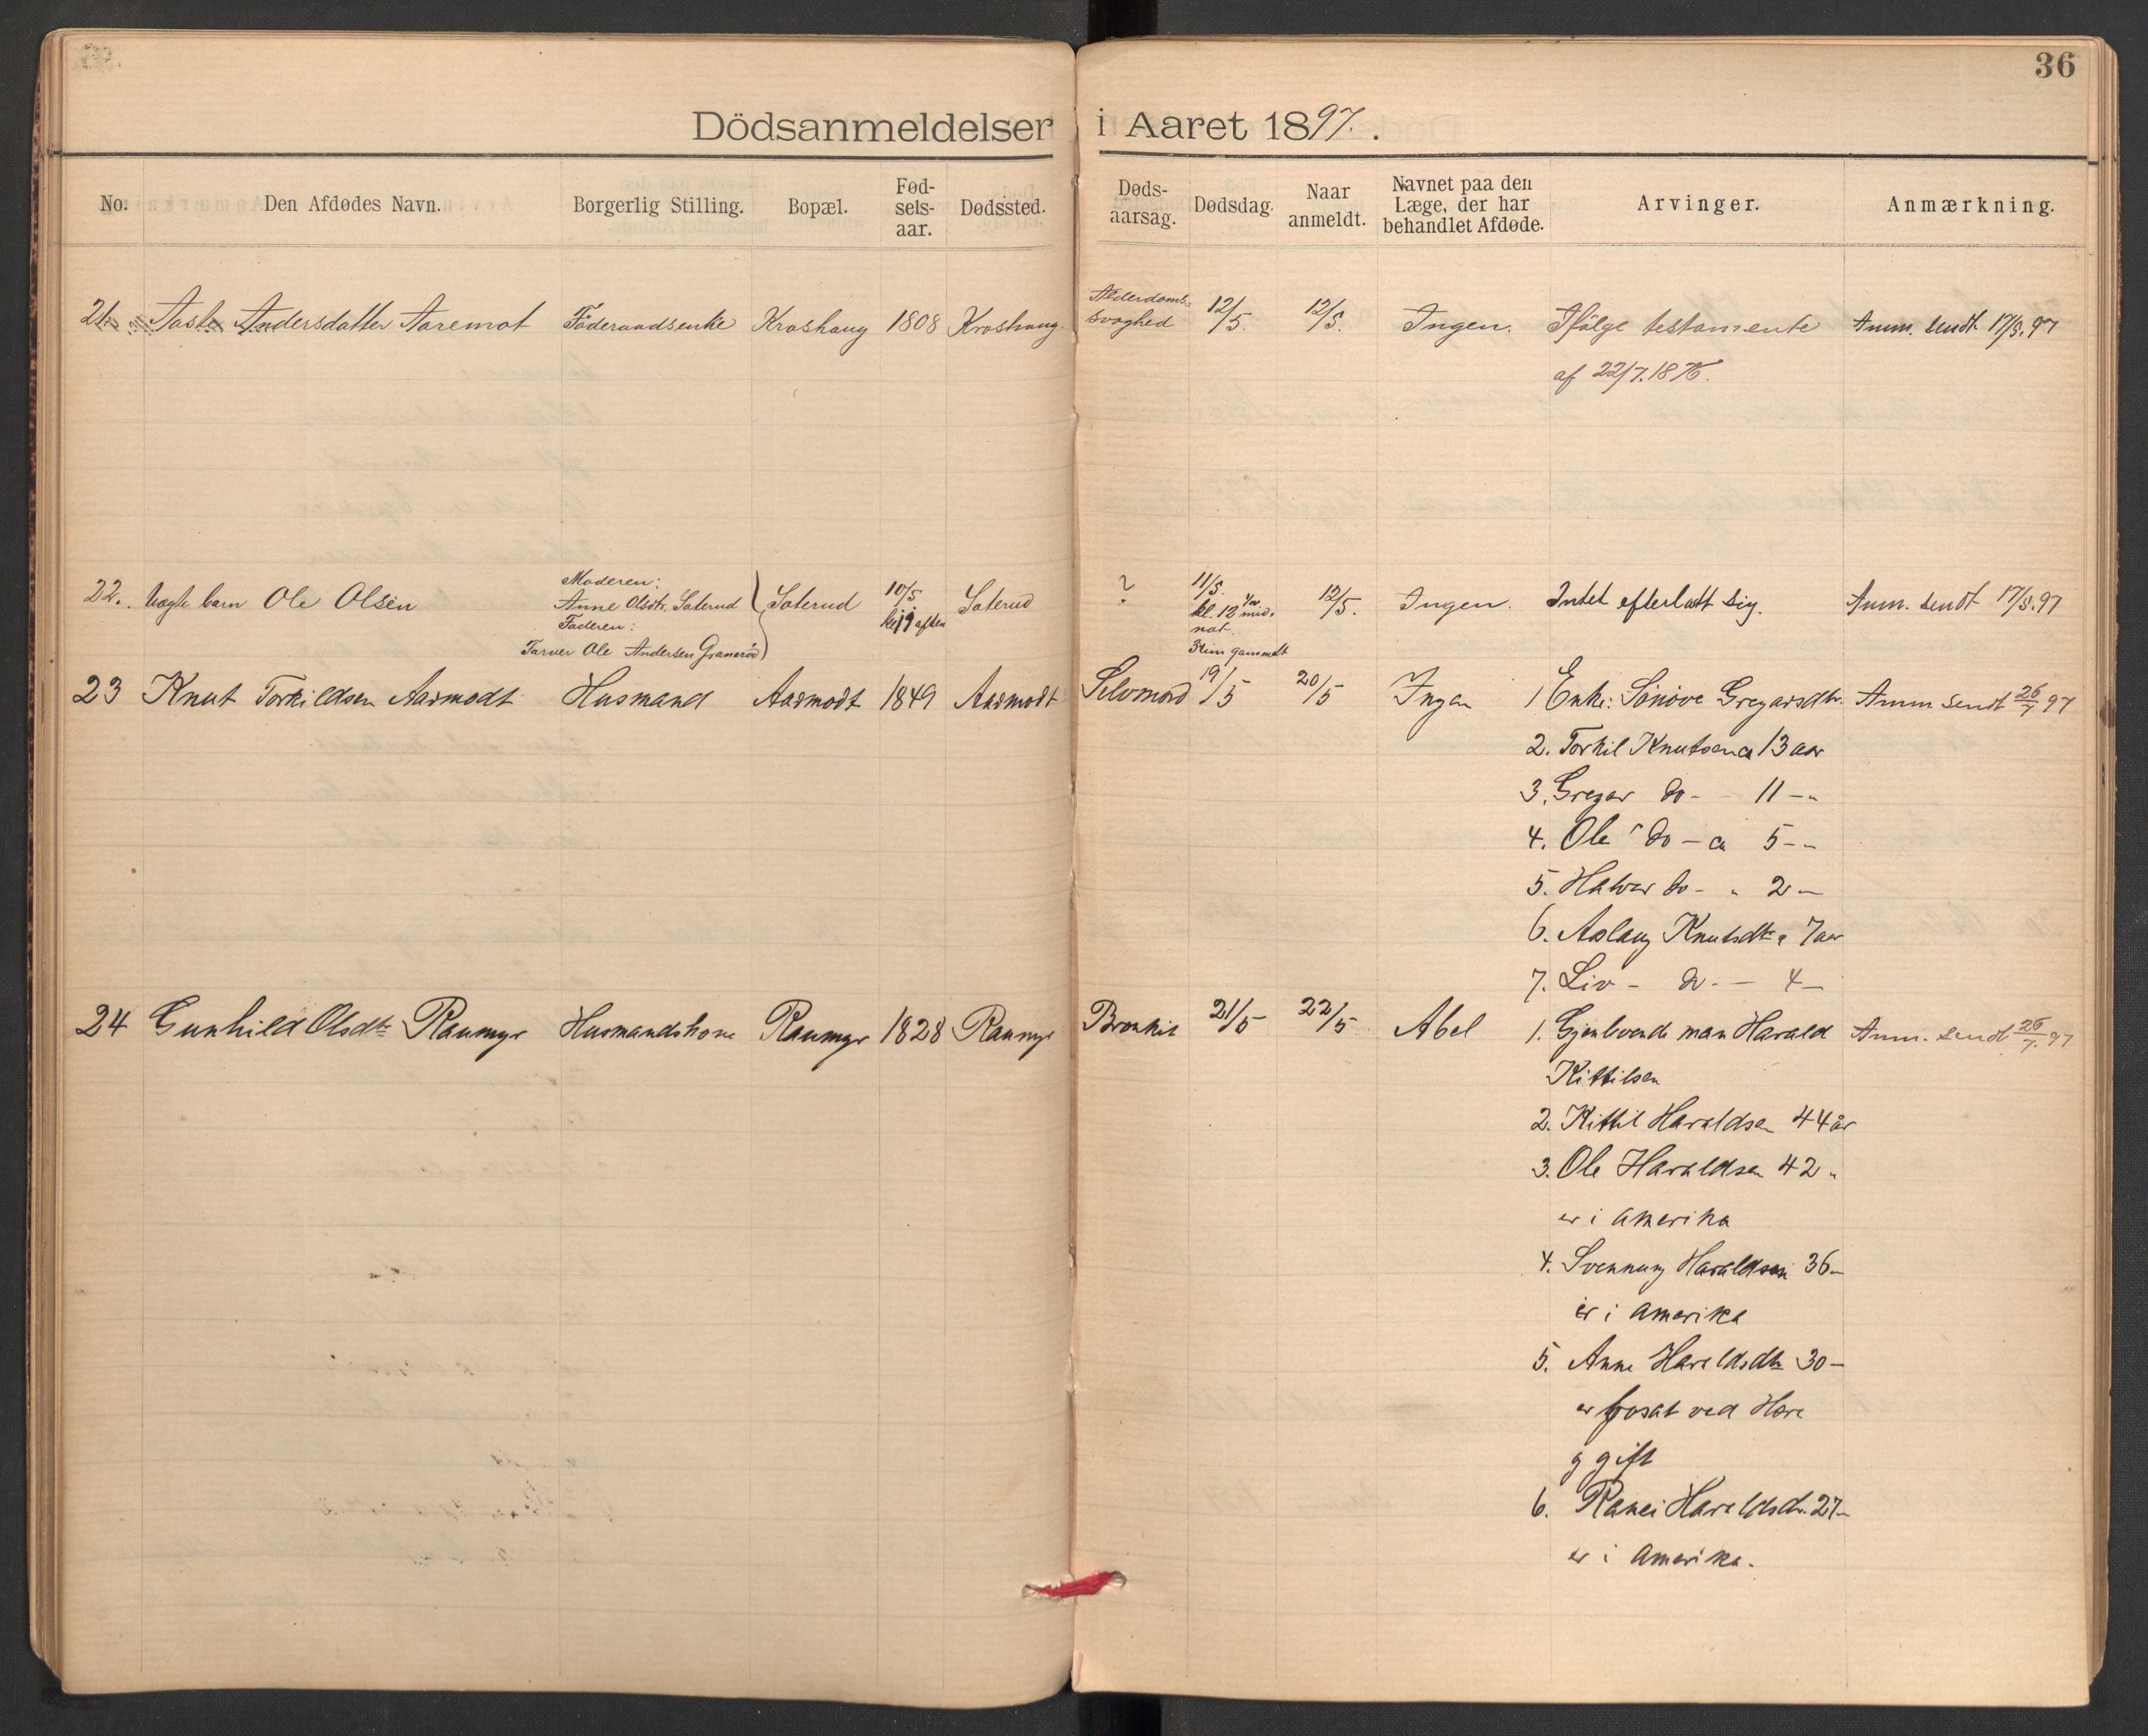 36
Dödsanmeldelser i Aaret 1897.
No. Den Afdødes Navn. Borgerlig Stilling. Bopæl. Fød-sels-aar. Dødssted. Døds-aarsag. Dødsdag. Naar anmeldt. Navnet paa den Læge, der har behandlet Afdøde. Arvinger. Anmærkning.
21. Aaste Andersdatter Aaremot Föderaadsenke Kroshaug 1808 Kroshaug Alderdoms- 12/5. 12/5. Ingen. Ifölge testamente Anm. sendt 17/5.97
svaghed
af 22/7.1876.
22. barn Ole Olsen
Moderen:
Anne Olsdtr. Saterud
Faderen:
Ole Andersen
Saterud 10/5 Saterud ? 11/5. 12/5. Ingen. Intet efterladt sig. Anm. sendt 17/5.97
kl. 12
nat.
gammelt
23 Knut Torkildsen Aarmodt Husmand Aarmodt 1849 Aarmodt Selvmord 19/5 20/5 Ingen 1 Enke: Sönove Gregarsdtr. Anm. sendt 26/7 97
2. Torkil Knutsen ca 13 aar
3. Gregar do - 11 -"
4. Ole do - ca 5 --
5. Halvor do - " 2 -
6. Aslaug Knutsdtr 7 aar
7. Liv - do - 4 -
24 Gunhild Olsdtr Raumyr Husmandskone Raumyr 1828 Raumyr Bronkit 21/5 22/5 Abel 1. Gjenlevende man Harald Anm. sendt 26/7. 97
Kittilsen
2. Kittil Haraldsen 44 år
3. Ole Haraldsen 42 "
er i Amerika
4. Svennung Haraldsen 36 -
er i Amerika
5. Anne Haraldsdtr 30 -
er bosat ved
g gift
6. Ranei Haraldsdr. 27 -
er i Amerika.